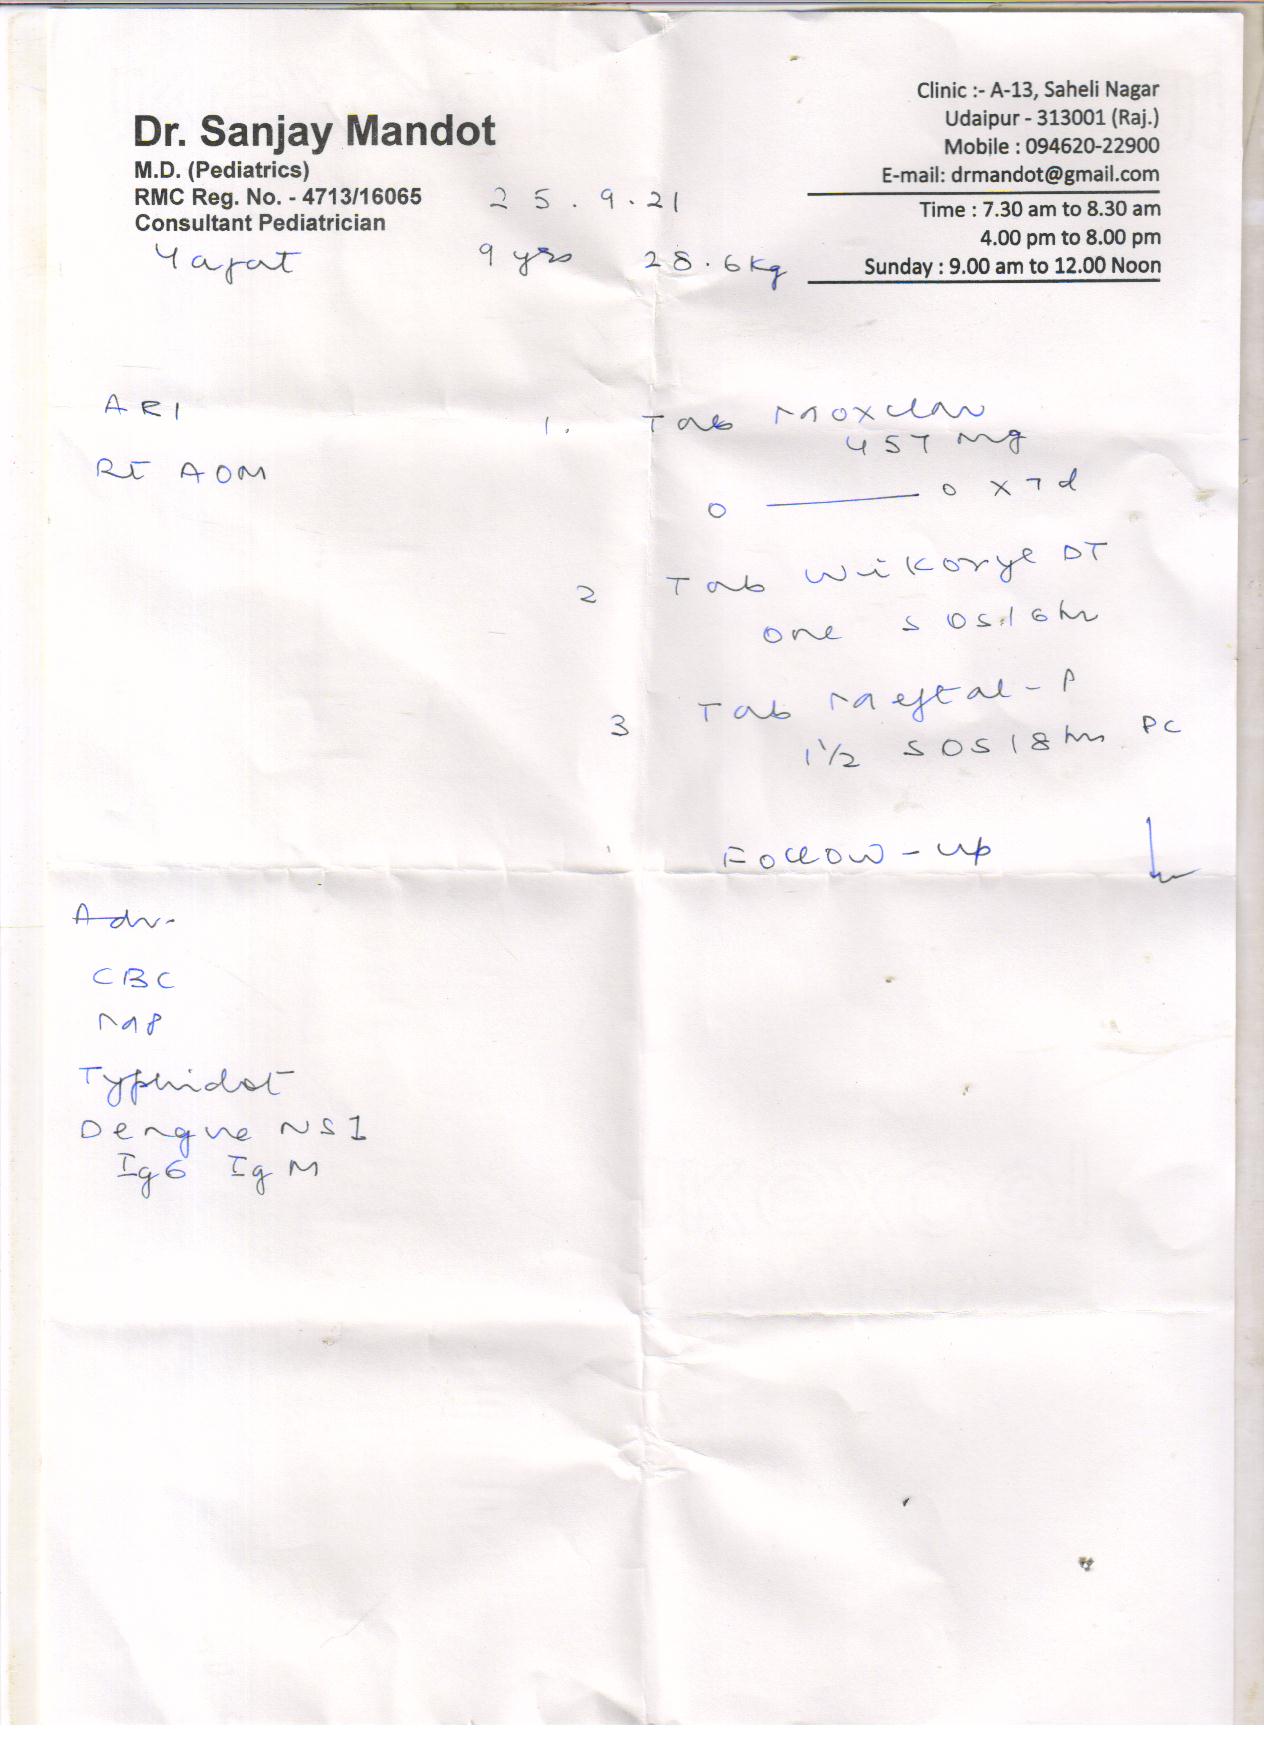 Dr. Sanjay Mandot
M.D. (Pediatrics)
RMC Reg. No. - 4713/16065
Consultant Pediatrician
Clinic :- A-13, Saheli Nagar
Udaipur - 313001 (Raj.)
Mobile : 094620-22900
E-mail: drmandot@gmail.com
Time : 7.30 am to 8.30 am
4.00 pm to 8.00 pm
Sunday : 9.00 am to 12.00 Noon
25.9.21
9 yrs 28.6kg
ARI
Rt AOM
1. Tab Moxclav
457 mg
0 — 0 x 7d
2 Tab Wikoryl DT
one SOS / 6 hr
3 Tab Meftal-P
1 1/2 SOS / 8 hr PC
Follow-up
Adv-
CBC
MP
Typhidot
Dengue NS1
IgG IgM